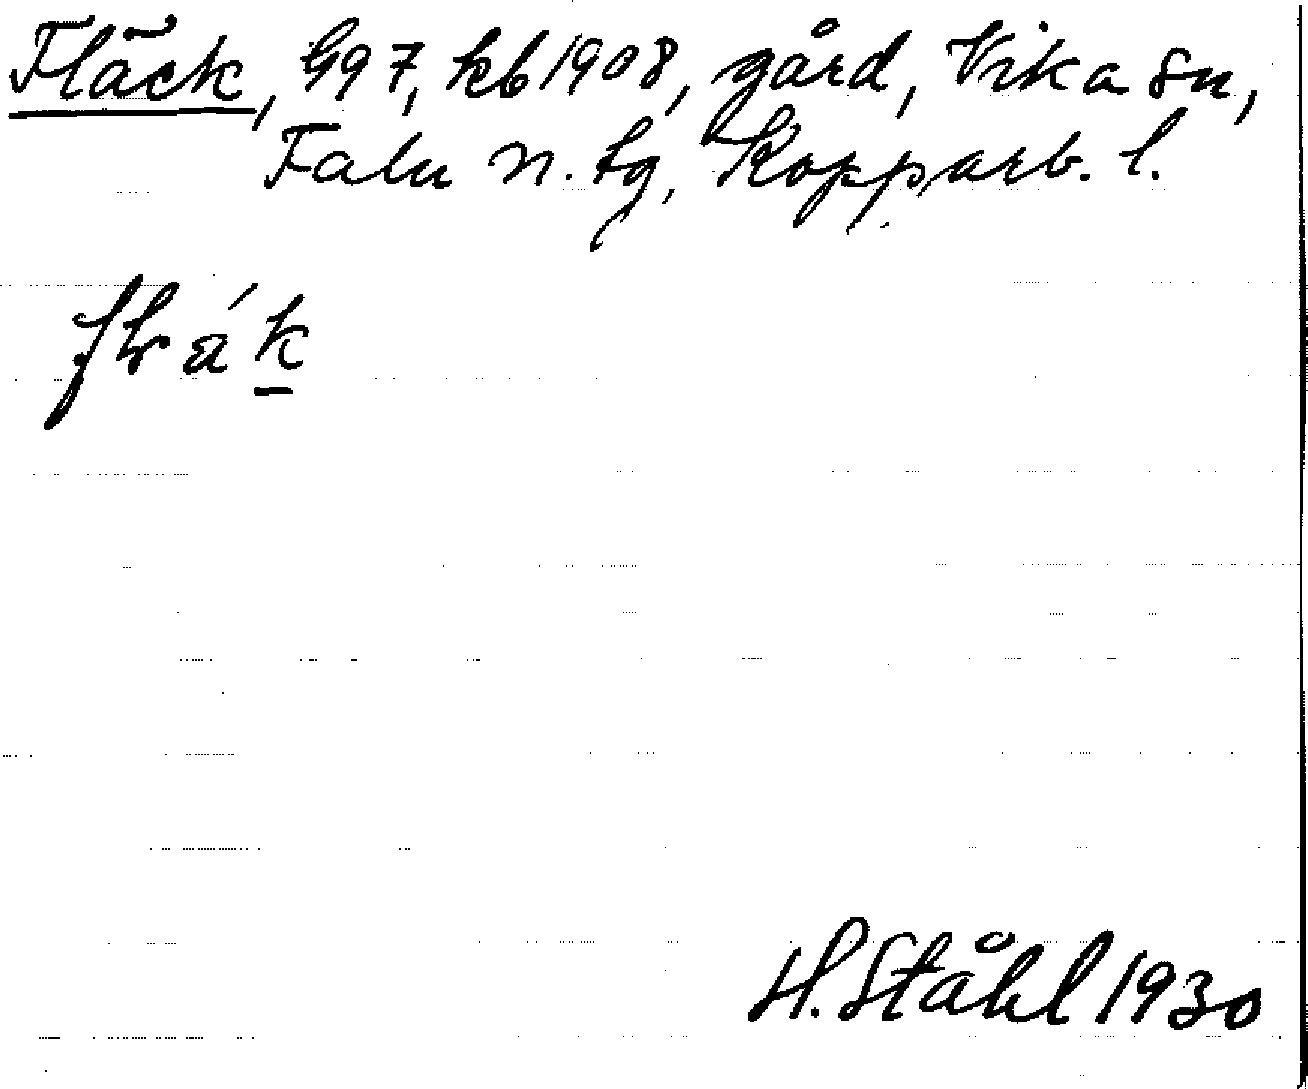 Fläck, Gg 7, kb 1908, gård, Vika sn,
Falu n. tg, Kopparb. l.
H. Ståhl 1930